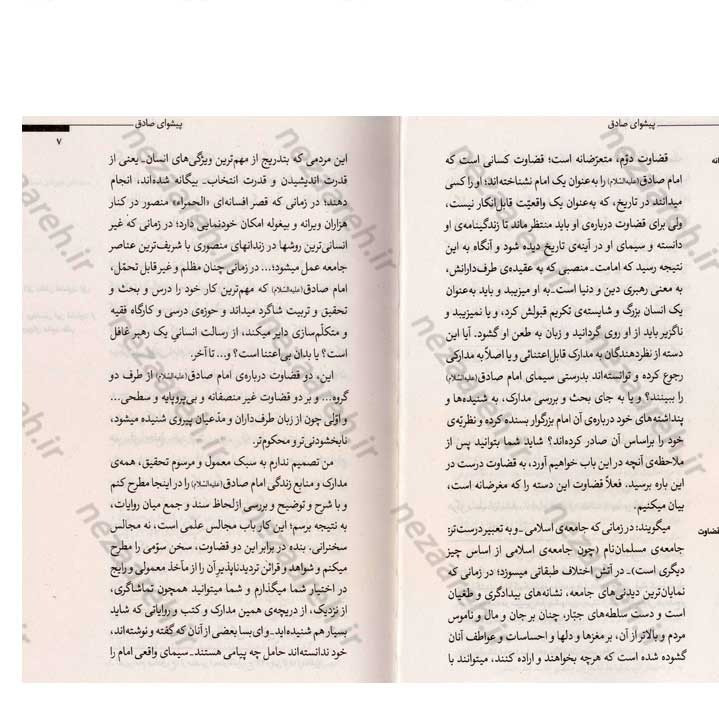 پیشوای صادق
قضاوت دوّم، متعرّضانه است؛ قضاوت کسانی است که
امام صادق(علیه‌السّلام) را به‌عنوان یک امام نشناخته‌اند؛ او را کسی
میدانند در تاریخ، که به‌عنوان یک واقعیّت قابل‌انکار نیست،
ولی برای قضاوت درباره‌ی او باید منتظر ماند تا زندگینامه‌ی او
دانسته و سیمای او در آینه‌ی تاریخ دیده شود و آنگاه به این
نتیجه رسید که امامت ـ منصبی که به عقیده‌ی طرف‌دارانش،
به معنی رهبری دین و دنیا است ـ به او میزیبد و باید به‌عنوان
یک انسان بزرگ و شایسته‌ی تکریم قبولش کرد، و یا نمیزیبد و
ناگزیر باید از او روی گردانید و زبان به طعن او گشود. آیا این
دسته از نظردهندگان به مدارک قابل‌اعتنائی و یا اصلاً به مدارکی
رجوع کرده و توانسته‌اند بدرستی سیمای امام صادق(علیه‌السّلام)
را ببینند؟ و یا به جای بحث و بررسی مدارک، به شنیده‌ها و
پنداشته‌های خود درباره‌ی آن امام بزرگوار بسنده کرده و نظریّه‌ی
خود را براساس آن صادر کرده‌اند؟ شاید شما بتوانید پس از
ملاحظه‌ی آنچه در این باب خواهیم آورد، به قضاوت درست در
این باره برسید. فعلاً قضاوت این دسته را که مغرضانه است،
بیان میکنیم.
میگویند: در زمانی که جامعه‌ی اسلامی ـ و به تعبیر درست‌تر:
جامعه‌ی مسلمان‌نام (چون جامعه‌ی اسلامی از اساس چیز
دیگری است) ـ در آتش اختلاف طبقاتی میسوزد؛ در زمانی که
نمایان‌ترین دیدنی‌های جامعه، نشانه‌های بیدادگری و طغیان
است و دست سلطه‌های جبّار، چنان بر جان و مال و ناموس
مردم و بالاتر از آن، بر مغزها و دلها و احساسات و عواطف آنان
گشوده شده است که هرچه بخواهند و اراده کنند، میتوانند با
قضاوت
پیشوای صادق
۷
این مردمی که بتدریج از مهم‌ترین ویژگی‌های انسان ـ یعنی از
قدرت اندیشیدن و قدرت انتخاب ـ بیگانه شده‌اند، انجام
دهند؛ در زمانی که قصر افسانه‌ای «الحمراء» منصور در کنار
هزاران ویرانه و بیغوله امکان خودنمایی دارد؛ در زمانی که غیر
انسانی‌ترین روشها در زندانهای منصوری با شریف‌ترین عناصر
جامعه عمل میشود؛... در زمانی چنان مظلم و غیر قابل تحمّل،
امام صادق(علیه‌السّلام) که مهم‌ترین کار خود را درس و بحث و
تحقیق و تربیت شاگرد میداند و حوزه‌ی درسی و کارگاه فقیه
و متکلّم‌سازی دایر میکند، از رسالت انسانیِ یک رهبر غافل
است؟ یا بدان بی‌اعتنا است؟ و... تا آخر.
این، دو قضاوت درباره‌ی امام صادق(علیه‌السّلام) از طرف دو
گروه... و بر دو قضاوت غیر منصفانه و بی‌پروپایه و سطحی...
و اوّلی چون از زبان طرف‌داران و مدّعیان پیروی شنیده میشود،
نابخشودنی‌تر و محکوم‌تر.
من تصمیم ندارم به سبک معمول و مرسوم تحقیق، همه‌ی
مدارک و منابع زندگی امام صادق(علیه‌السّلام) را در اینجا مطرح کنم
و با شرح و توضیح و بررسی ازلحاظ سند و جمع میان روایات،
به نتیجه برسم؛ این کار باب مجالس علمی است، نه مجالس
سخنرانی. بنده در برابر این دو قضاوت، سخن سوّمی را مطرح
میکنم و شواهد و قرائن تردیدناپذیرِ آن را از مآخذ معمولی و رایج
در اختیار شما میگذارم و شما میتوانید همچون تماشاگری،
از نزدیک، از دریچه‌ی همین مدارک و کتب و روایاتی که شاید
بسیار هم شنیده‌اید ـ و ای بسا بعضی از آنان که گفته و نوشته‌اند،
خود ندانسته‌اند حامل چه پیامی هستند ـ سیمای واقعی امام را
nezaareh.ir